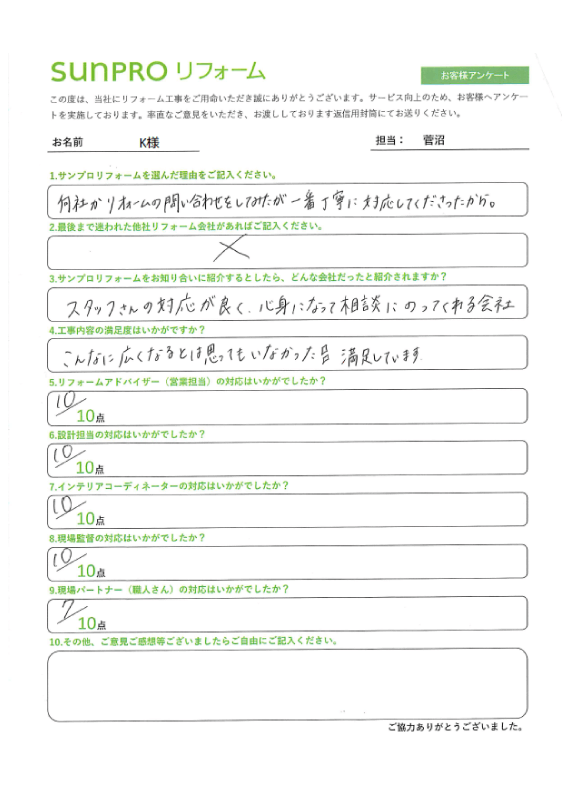 sunPRO リフォーム
お客様アンケート
この度は、当社にリフォーム工事をご用命いただき誠にありがとうございます。サービス向上のため、お客様へアンケー
トを実施しております。率直なご意見をいただき、お渡ししております返信用封筒にてお送りください。
お名前 K様 担当： 菅沼
1.サンプロリフォームを選んだ理由をご記入ください。
何社かリフォームの問い合わせをしてみたが一番丁寧に対応してくださったから。
2.最後まで迷われた他社リフォーム会社があればご記入ください。
×
3.サンプロリフォームをお知り合いに紹介するとしたら、どんな会社だったと紹介されますか？
スタッフさんの対応が良く、心身になって相談にのってくれる会社
4.工事内容の満足度はいかがですか？
こんなに広くなるとは思ってもいなかった 満足しています
5.リフォームアドバイザー（営業担当）の対応はいかがでしたか？
10/10点
6.設計担当の対応はいかがでしたか？
10/10点
7.インテリアコーディネーターの対応はいかがでしたか？
10/10点
8.現場監督の対応はいかがでしたか？
10/10点
9.現場パートナー（職人さん）の対応はいかがでしたか？
7/10点
10.その他、ご意見ご感想等ございましたらご自由にご記入ください。
ご協力ありがとうございました。